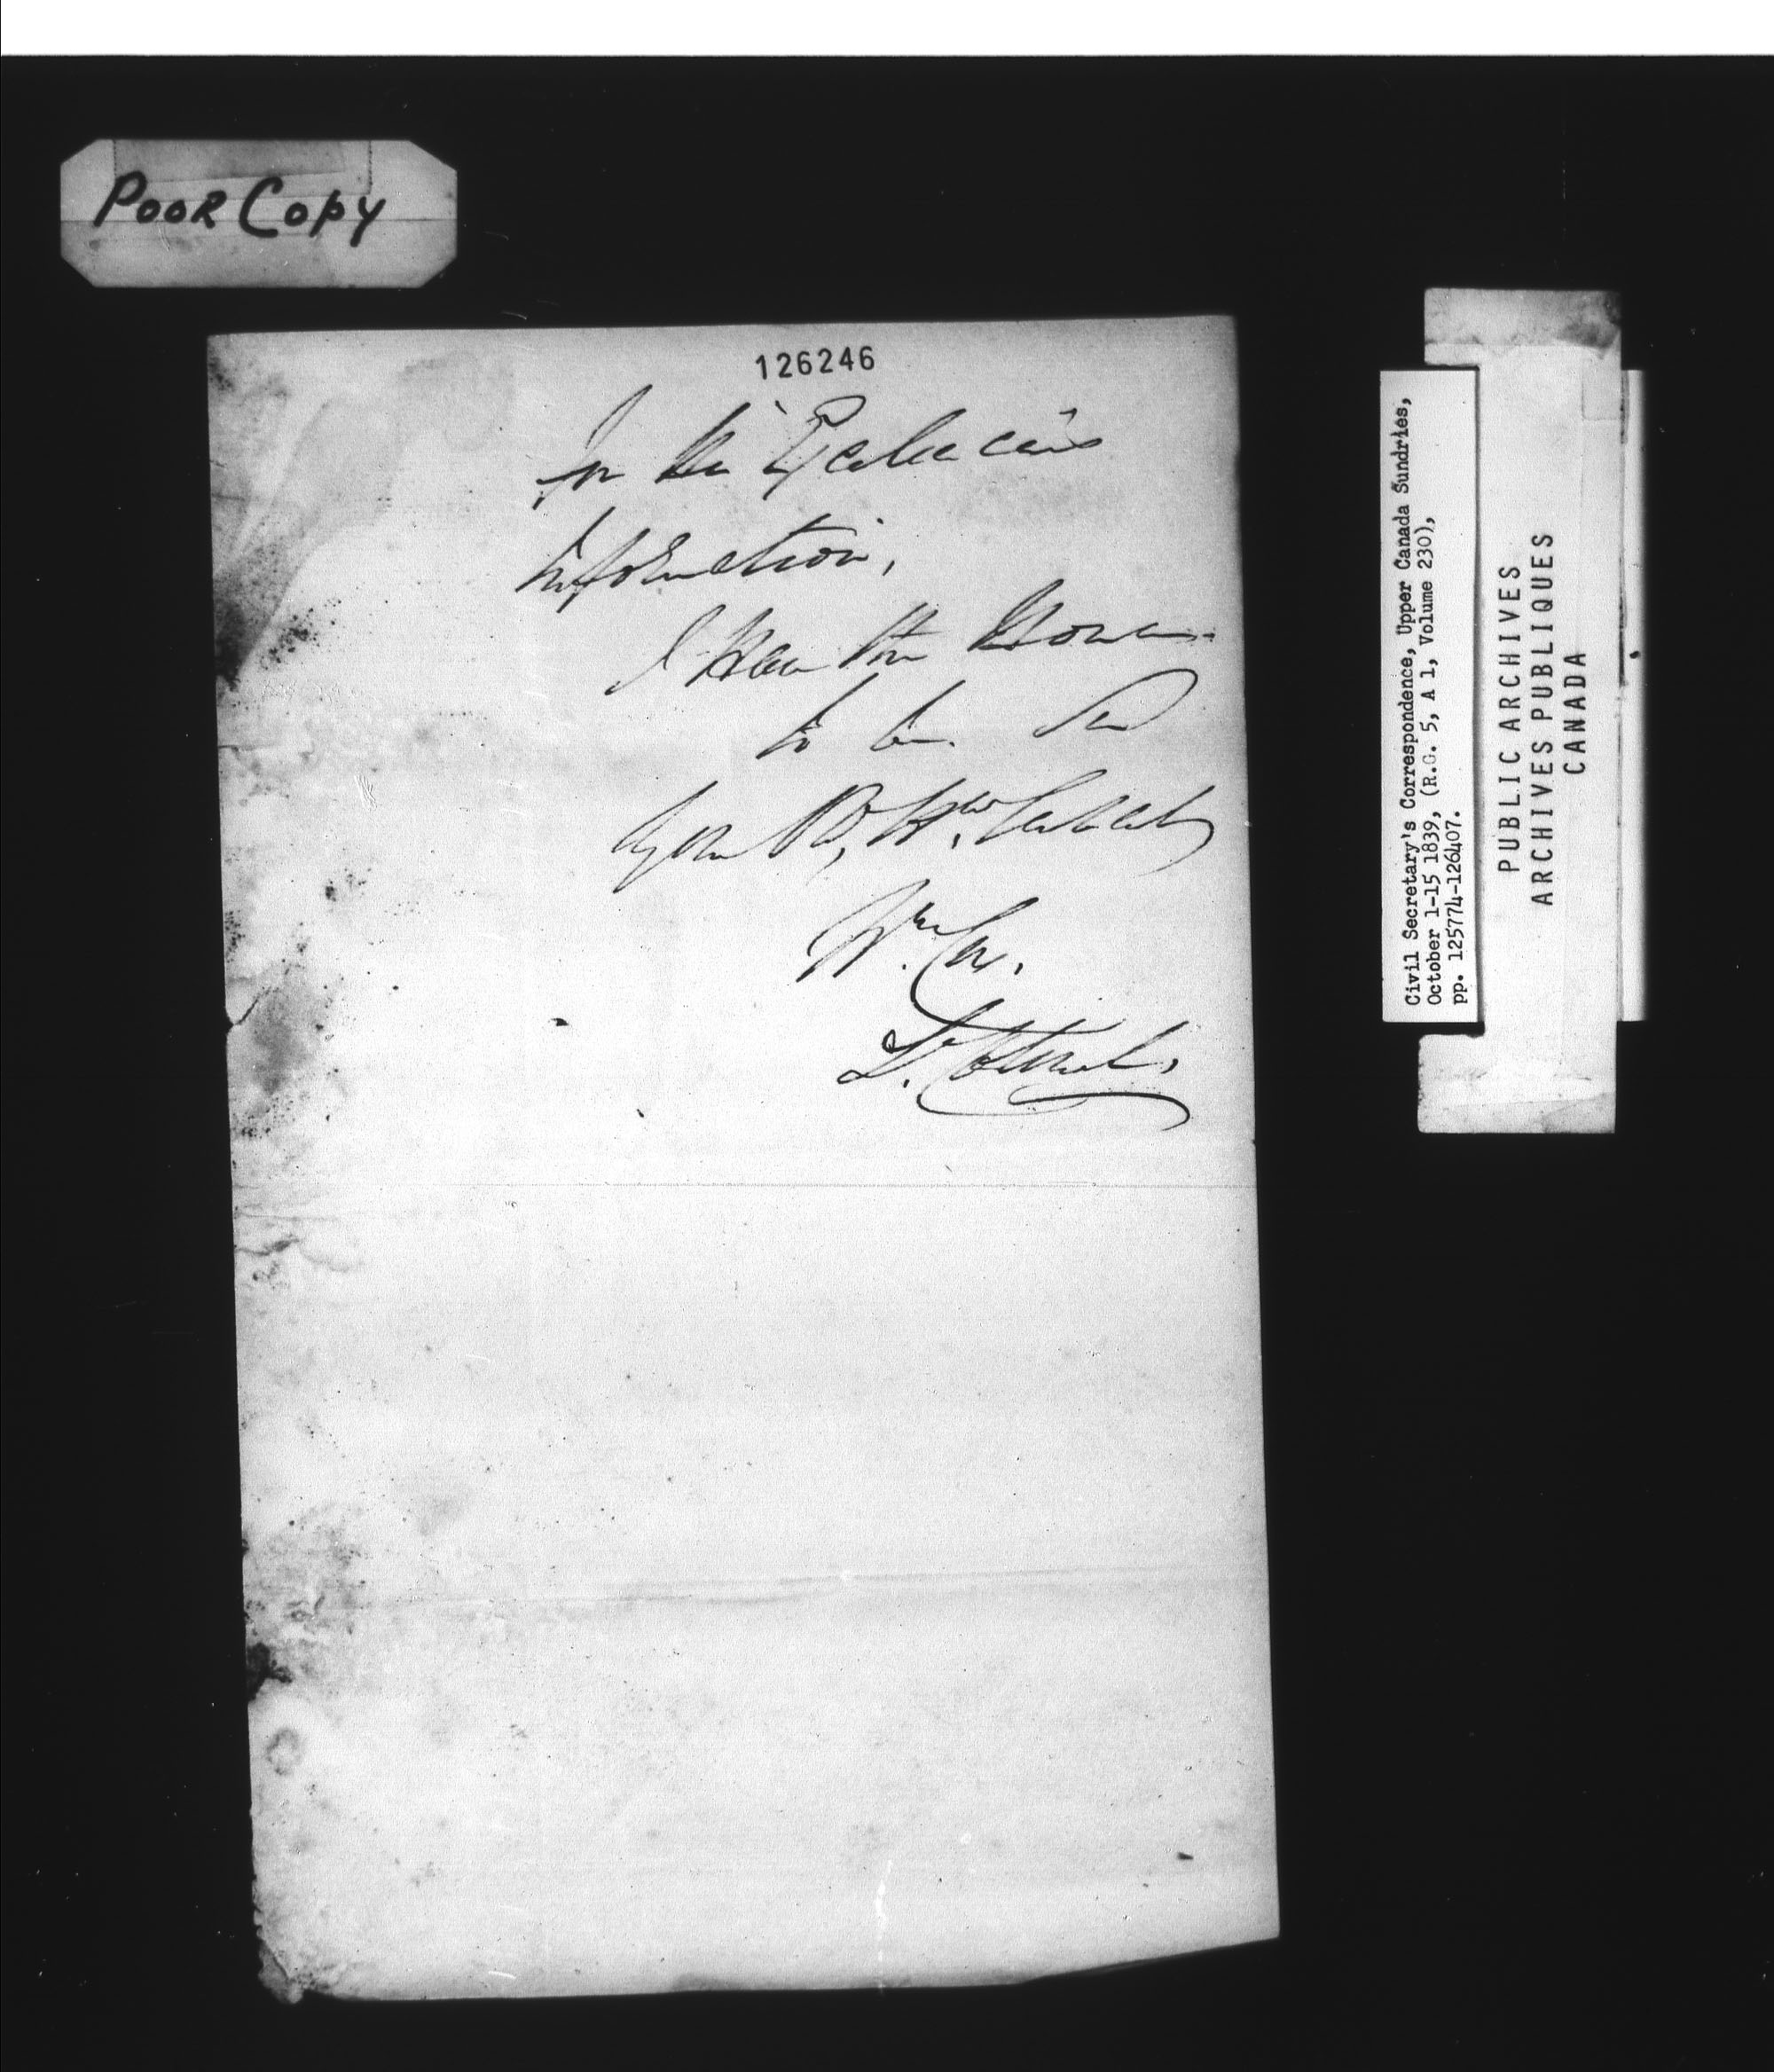 Poor Copy
126246
for His Excellencie's
information,
I Have the Honour
to be. Sir
your Ob. H. Servant
Wm Cox.
Lt. Colonel.
Civil Secretary's Correspondence, Upper Canada Sundries,
October 1-15 1839, (R.G. 5, A 1, Volume 230),
pp. 125774-126407.
PUBLIC ARCHIVES
ARCHIVES PUBLIQUES
CANADA